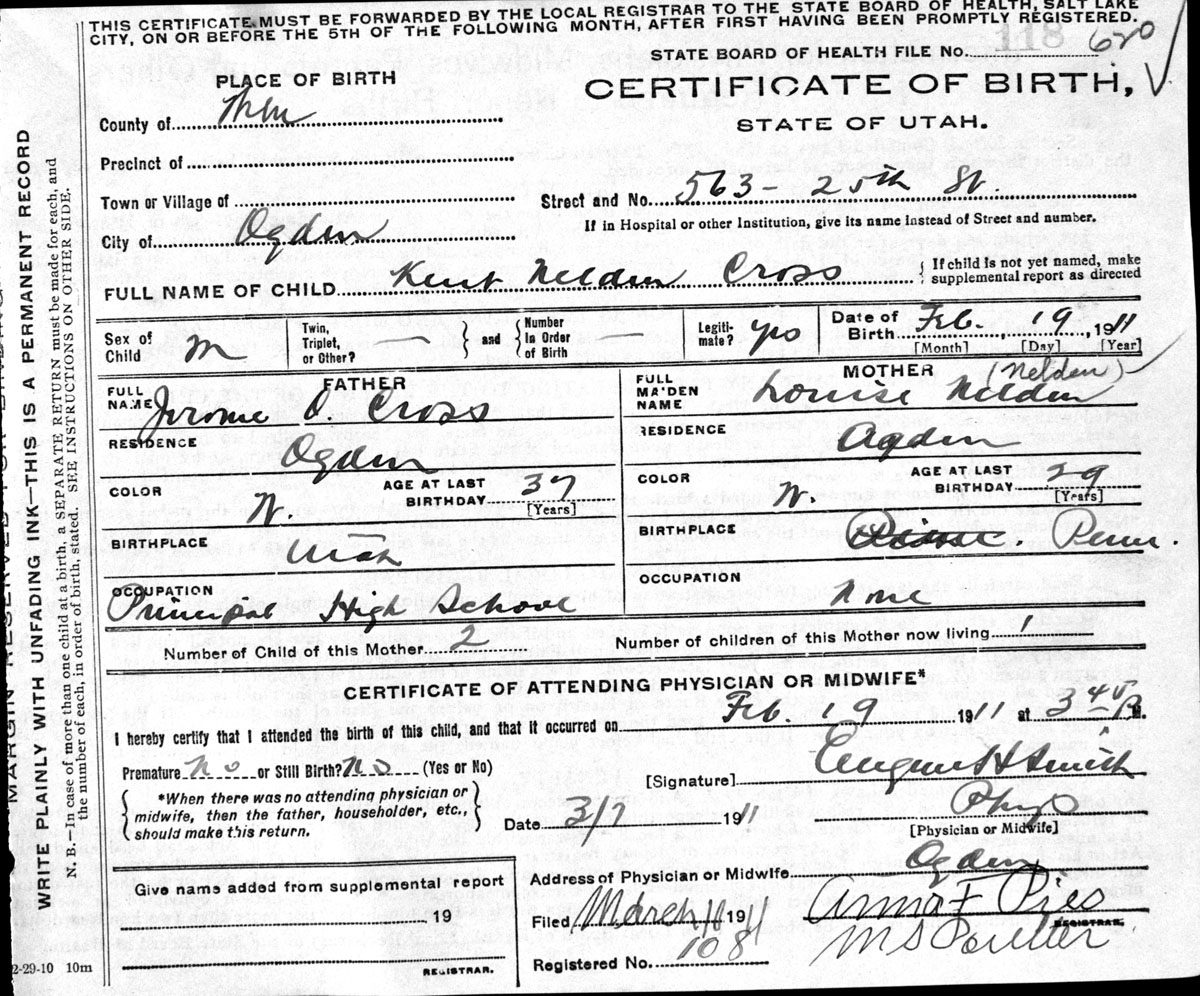 THIS CERTIFICATE MUST BE FORWARDED BY THE LOCAL REGISTRAR TO THE STATE BOARD OF HEALTH, SALT LAKE
CITY, ON OR BEFORE THE 5TH OF THE FOLLOWING MONTH, AFTER FIRST HAVING BEEN PROMPTLY REGISTERED.
STATE BOARD OF HEALTH FILE No. 118 620
PLACE OF BIRTH
CERTIFICATE OF BIRTH,
County of
STATE OF UTAH.
Precinct of
Town or Village of
Street and No. 563 - 25th St.
City of Ogden
If in Hospital or other Institution, give its name instead of Street and number.
FULL NAME OF CHILD Kent Nelden Cross { If child is not yet named, make supplemental report as directed
Sex of Child M Twin, Triplet, or Other? — } and { Number in Order of Birth — Legitimate? yes Date of Birth Feb. 19, 1911
[Month] [Day] [Year]
FATHER
FULL NAME Jerome O Cross
RESIDENCE Ogden
COLOR W. AGE AT LAST BIRTHDAY 37 [Years]
BIRTHPLACE Utah
OCCUPATION Principal High School
MOTHER (Nelden)
FULL MA'DEN NAME Louise Nelden
RESIDENCE Ogden
COLOR W. AGE AT LAST BIRTHDAY 29 [Years]
BIRTHPLACE Penn.
OCCUPATION None
Number of Child of this Mother 2 Number of children of this Mother now living 1
CERTIFICATE OF ATTENDING PHYSICIAN OR MIDWIFE*
I hereby certify that I attended the birth of this child, and that it occurred on Feb. 19 1911 at 3 40 P. M.
Premature No or Still Birth? No (Yes or No)
[Signature] Eugene H Smith
*When there was no attending physician or
midwife, then the father, householder, etc.,
should make this return.
Date 3/7 1911
Phys
[Physician or Midwife]
Address of Physician or Midwife Ogden
Give name added from supplemental report
19
REGISTRAR.
Filed March 11 1911 Anna F Pies
REGISTRAR.
M S Poulter
Registered No. 108
2-29-10 10m
MARGIN RESERVED FOR BINDING
WRITE PLAINLY WITH UNFADING INK—THIS IS A PERMANENT RECORD
N. B.—In case of more than one child at a birth, a SEPARATE RETURN must be made for each, and
the number of each, in order of birth, stated. SEE INSTRUCTIONS ON OTHER SIDE.